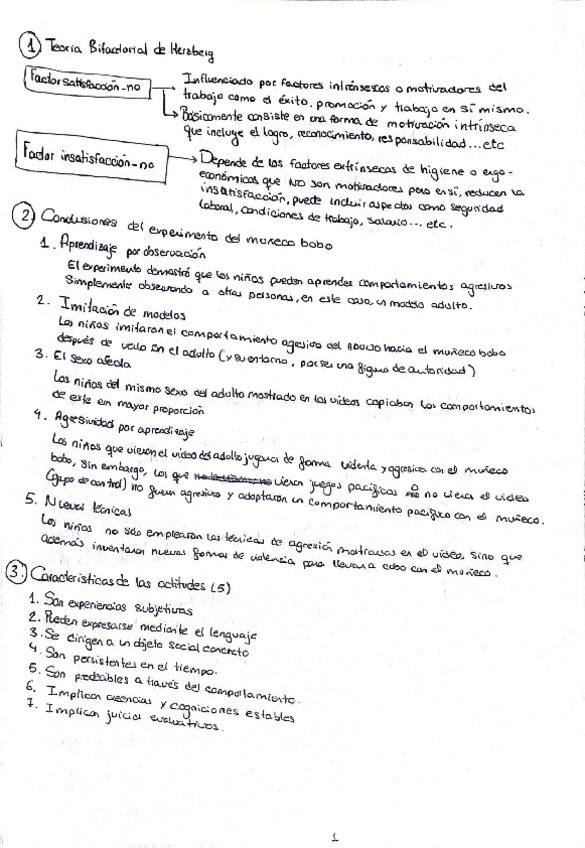 1 Teoría Bifactorial de Herzberg
Factor satisfacción-no
Influenciado por factores intrínsecos o motivadores del
trabajo como el éxito, promoción y trabajo en sí mismo.
Básicamente consiste en una forma de motivación intrínseca
que incluye el logro, reconocimiento, responsabilidad...etc
Factor insatisfacción-no
Depende de los factores extrínsecos de higiene o ergo-
económicos que NO son motivadores pero en sí, reducen la
insatisfacción, puede incluir aspectos como seguridad
laboral, condiciones de trabajo, salario... etc.
2 Conclusiones del experimento del muñeco bobo
1. Aprendizaje por observación
El experimento demostró que los niños pueden aprender comportamientos agresivos
simplemente observando a otras personas, en este caso, un modelo adulto.
2. Imitación de modelos
Los niños imitaron el comportamiento agresivo del ADULTO hacia el muñeco bobo
después de verlo en el adulto (y su entorno, por ser una figura de autoridad)
3. El sexo afecta
Los niños del mismo sexo del adulto mostrado en los videos copiaban los comportamientos
de este em mayor proporción
4. Agresividad por aprendizaje
Los niños que vieron el video del adulto jugaron de forma violenta y agresiva con el muñeco
bobo, sin embargo, los que vieron juegos pacíficos o no vieron el video
(grupo de control) no fueron agresivos y adoptaron un comportamiento pacífico con el muñeco.
5. Nuevas técnicas
Los niños no solo emplearon las técnicas de agresión mostradas en el video, sino que
además inventaron nuevas formas de violencia para llevar a cabo con el muñeco.
3. Características de las actitudes (5)
1. Son experiencias subjetivas
2. Pueden expresarse mediante el lenguaje
3. Se dirigen a un objeto social concreto
4. Son persistentes en el tiempo.
5. Son predecibles a través del comportamiento.
6. Implica creencias y cogniciones estables
7. Implican juicios evaluativos.
1